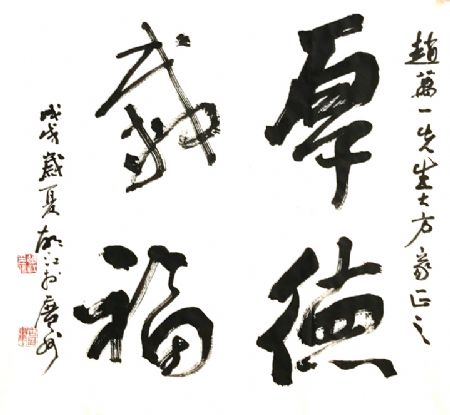 趙萬一先生大方家正之
厚德
載福
戊戌歲夏江於廣州